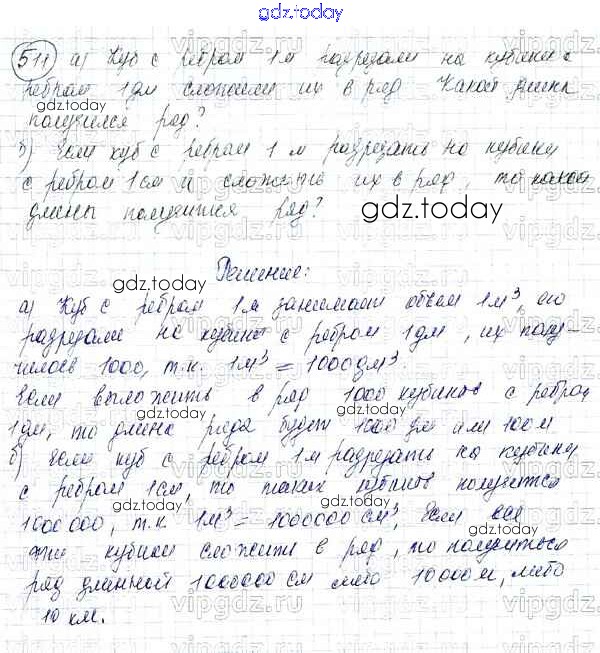 gdz.today
511 а) Куб с ребром 1 м разрезали на кубики с
ребром 1 дм сложили их в ряд Какой длины
gdz.today
получился ряд?
б) Если куб с ребром 1 м разрезать на кубики
с ребром 1 см и сложить их в ряд, то какой
длины получится ряд?
gdz.today
Решение:
gdz.today
а) Куб с ребром 1 м занимает объем 1 м³, его
разрезали на кубики с ребром 1 дм, их полу-
чилось 1000, т.к. 1 м³ = 1000 дм³.
Если выложить в ряд 1000 кубиков с ребром
gdz.today
gdz.today
1 дм, то длина ряда будет 1000 дм или 100 м
б) Если куб с ребром 1 м разрезать на кубики
с ребром 1 см, то таких кубиков получится
gdz.today
gdz.today
gdz.today
1000000, т.к. 1 м³ = 1000000 см³. Если все
эти кубики сложить в ряд, то получиться
ряд длинной 1000000 см либо 10000 м, либо
10 км.
vipgdz.ru